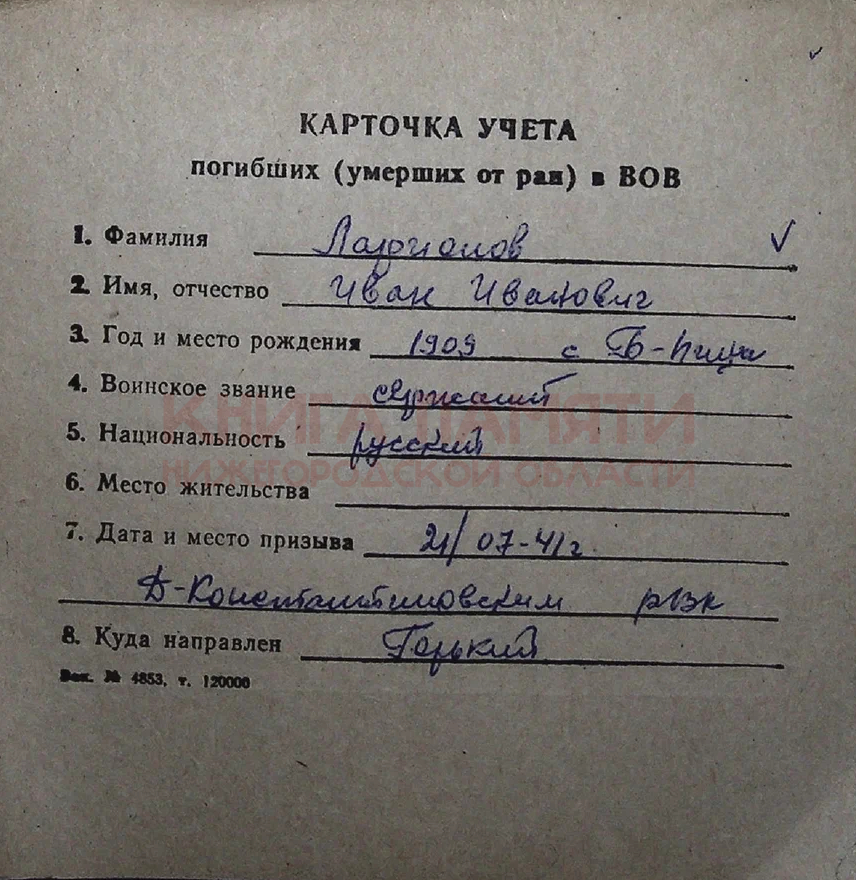 КАРТОЧКА УЧЕТА
погибших (умерших от ран) в ВОВ
1. Фамилия Ларионов
2. Имя, отчество Иван Иванович
3. Год и место рождения 1909 с Б-
4. Воинское звание сержант
5. Национальность русский
6. Место жительства
7. Дата и место призыва 21/07-41г.
Д-Константиновским рвк
8. Куда направлен Горький
Зак. № 4853, т. 120000
КНИГА ПАМЯТИ
НИЖЕГОРОДСКОЙ ОБЛАСТИ